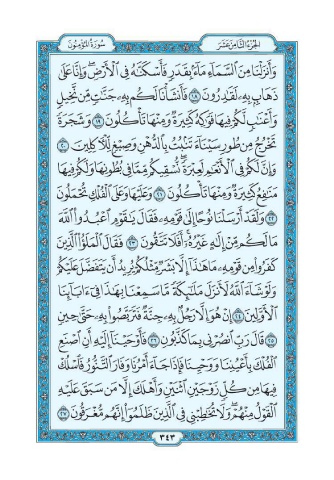 سُورَةُ المُؤْمِنُونَ الجُزْءُ الثَّامِنَ عَشَرَ
وَأَنزَلْنَا مِنَ السَّمَاءِ مَاءً بِقَدَرٍ فَأَسْكَنَّاهُ فِي الْأَرْضِ وَإِنَّا عَلَىٰ
ذَهَابٍ بِهِ لَقَادِرُونَ ١٨ فَأَنشَأْنَا لَكُم بِهِ جَنَّاتٍ مِّن نَّخِيلٍ
وَأَعْنَابٍ لَّكُمْ فِيهَا فَوَاكِهُ كَثِيرَةٌ وَمِنْهَا تَأْكُلُونَ ١٩ وَشَجَرَةً
تَخْرُجُ مِن طُورِ سَيْنَاءَ تَنبُتُ بِالدُّهْنِ وَصِبْغٍ لِّلْآكِلِينَ ٢٠
وَإِنَّ لَكُمْ فِي الْأَنْعَامِ لَعِبْرَةً نُّسْقِيكُم مِّمَّا فِي بُطُونِهَا وَلَكُمْ فِيهَا
مَنَافِعُ كَثِيرَةٌ وَمِنْهَا تَأْكُلُونَ ٢١ وَعَلَيْهَا وَعَلَى الْفُلْكِ تُحْمَلُونَ
٢٢ وَلَقَدْ أَرْسَلْنَا نُوحًا إِلَىٰ قَوْمِهِ فَقَالَ يَا قَوْمِ اعْبُدُوا اللَّهَ
مَا لَكُم مِّنْ إِلَٰهٍ غَيْرُهُ أَفَلَا تَتَّقُونَ ٢٣ فَقَالَ الْمَلَؤُا الَّذِينَ
كَفَرُوا مِن قَوْمِهِ مَا هَٰذَا إِلَّا بَشَرٌ مِّثْلُكُمْ يُرِيدُ أَن يَتَفَضَّلَ عَلَيْكُمْ
وَلَوْ شَاءَ اللَّهُ لَأَنزَلَ مَلَائِكَةً مَّا سَمِعْنَا بِهَٰذَا فِي آبَائِنَا
الْأَوَّلِينَ ٢٤ إِنْ هُوَ إِلَّا رَجُلٌ بِهِ جِنَّةٌ فَتَرَبَّصُوا بِهِ حَتَّىٰ حِينٍ
٢٥ قَالَ رَبِّ انصُرْنِي بِمَا كَذَّبُونِ ٢٦ فَأَوْحَيْنَا إِلَيْهِ أَنِ اصْنَعِ
الْفُلْكَ بِأَعْيُنِنَا وَوَحْيِنَا فَإِذَا جَاءَ أَمْرُنَا وَفَارَ التَّنُّورُ فَاسْلُكْ
فِيهَا مِن كُلٍّ زَوْجَيْنِ اثْنَيْنِ وَأَهْلَكَ إِلَّا مَن سَبَقَ عَلَيْهِ
الْقَوْلُ مِنْهُمْ وَلَا تُخَاطِبْنِي فِي الَّذِينَ ظَلَمُوا إِنَّهُم مُّغْرَقُونَ ٢٧
٣٤٣